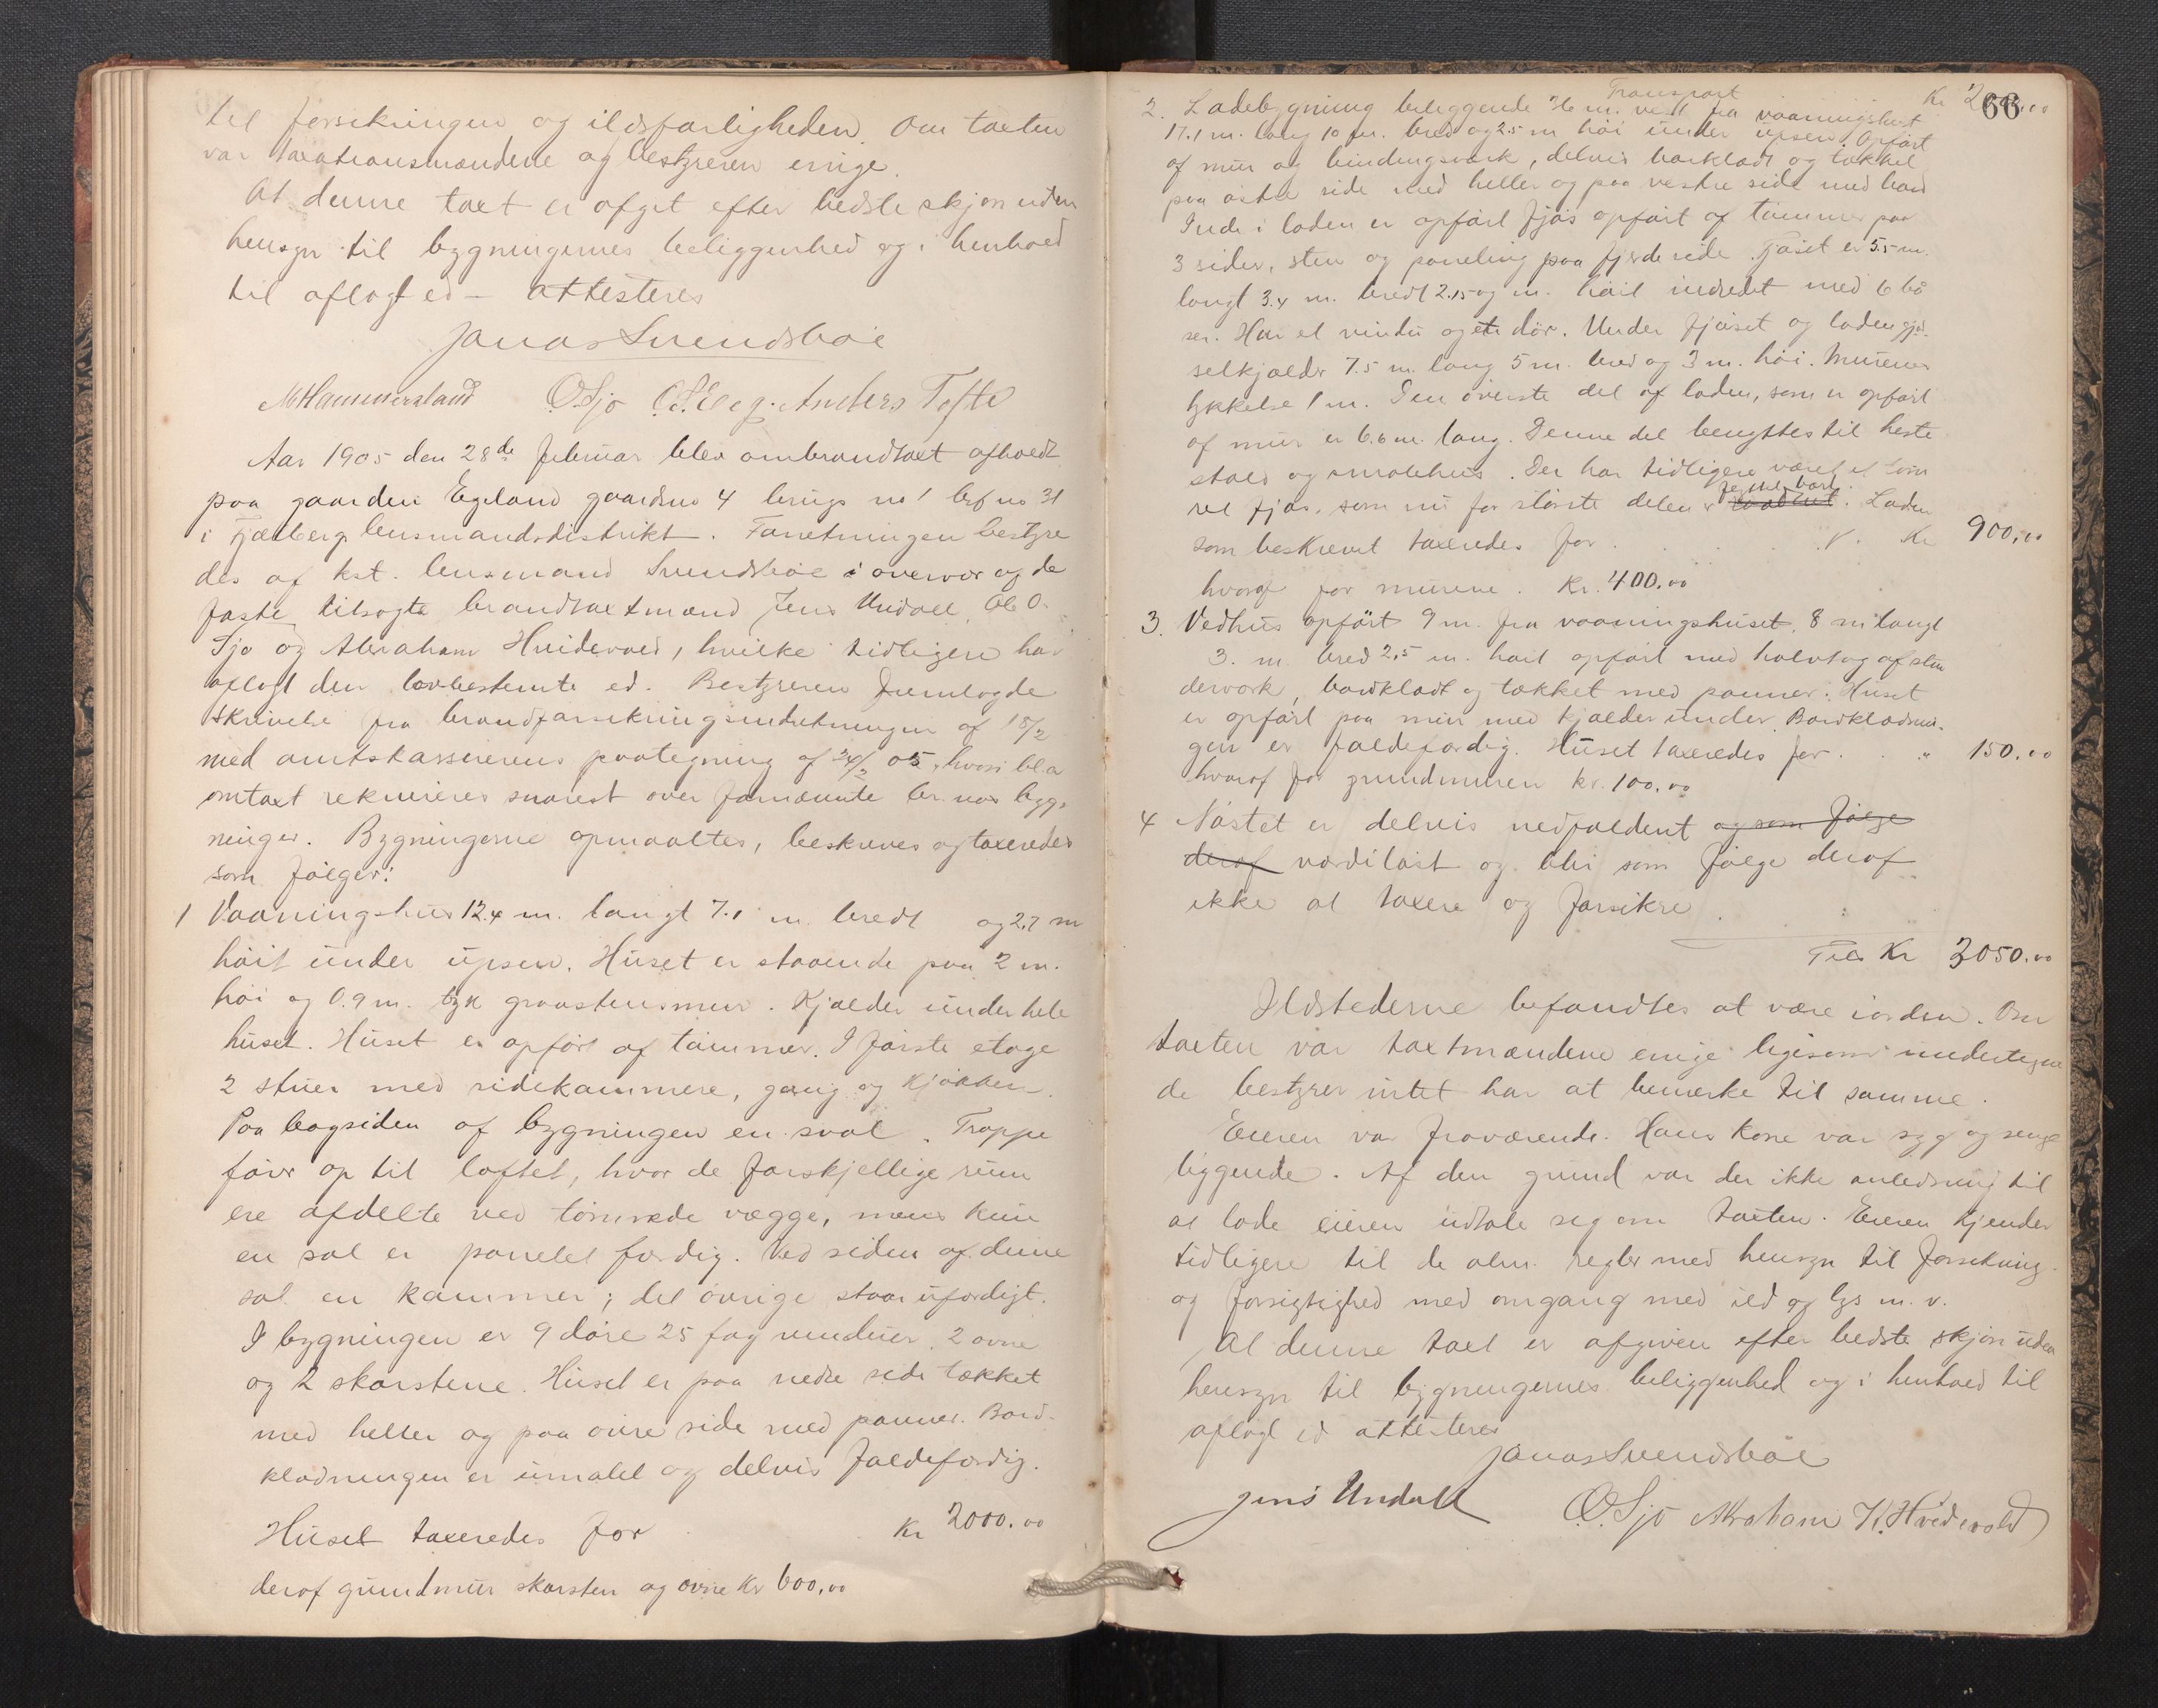 til forsikringen og ildsfarligheden. Om taxten
var taxationsmændene og bestyreren enige.
At denne taxt er afgit efter bedste skjøn uden
hensyn til bygningernes beliggenhed og i henhold
til aflagt ed – attesteres
Jonas Svendsbøe
M Hammersland O. Sjo Anders Tofte
Aar 1905 den 28de februar blev ombrandtaxt afholdt
paa gaarden Egeland gaardsno 4 brugs no 1 brf no 31
i Fjelberg lensmandsdistrikt. Foretningen bestyre
des af kst. lensmand Svendsbøe i overvær af de
faste tilsagte brandtaxtmænd Jens Undall, Ole O.
Sjo og Abraham Hvidevold, hvilke tidligere har
aflagt den lovbestemte ed. Bestyreren fremlagde
skrivelse fra brandforsikringsindretningen af 15/2
med amtskassererens paategning af 24/2 05, hvori bl.a
omtaxt rekvireres snarest over fornævnte br. nos byg-
ninger. Bygningerne opmaaltes, beskreves og taxeredes
som følger:
1 Vaaningshus 12.4 m. langt 7.1 m. bredt og 2.7 m
høit under upsen. Huset er staaende paa 2 m.
høi og 0.9 m. tyk graastensmur. Kjælder under hele
huset. Huset er opført af tømmer. I første etage
2 stuer med sidekammere, gang og kjøkken.
Paa bagsiden af bygningen en sval. Trappe
fører op til loftet, hvor de forskjellige rum
ere afdelte ved tømrede vægge, mens kun
en sal er panelet færdig. Ved siden af denne
sal en kammer; det øvrige staar ufærdigt.
I bygningen er 9 døre 25 fag vinduer, 2 ovne
og 2 skorstene. Huset er paa nedre side tækket
med heller og paa øvre side med panner. Bord-
klædningen er umalet og delvis faldefærdig.
Huset taxeredes for Kr 2000.00
deraf grundmur skorsten og ovne Kr 600,00
66
Transport Kr
2. Ladebygning beliggende 36 m. vest fra vaaningshuset
17.1 m. lang 10 m. bred og 2.5 m høi under upsen. Opført
af mur og bindingsverk, delvis bordklædt og tækket
paa østre side med heller og paa vestre side med bord
Inde i laden er opført fjøs opført af tømmer paa
3 sider, sten og paneling paa fjerde side. Fjøset er 5.5 m.
langt 3.4 m. bredt 2.15 og m. høit indredet med 6 bå
ser. Har et vindu og en dør. Under fjøset og laden gjø-
selkjælder 7.5 m. lang 5 m. bred og 3 m. høi. Murenes
tykkelse 1 m. Den øverste del af laden, som er opført
af mur er 6.6 m. lang. Denne del benyttes til heste
stald og smalehus. Der har tidligere været et
vel fjøs, som nu for største delen er. Laden
som beskrevet taxeredes for . . . Kr 900,00
hvoraf for murene. Kr. 400.00
3. Vedhus opført 9 m. fra vaaningshuset, 8 m langt
3. m. bred 2,5 m. høit opført med halvtag af stæn
derværk, bordklædt og tækket med panner. Huset
er opført paa mur med kjælder under. Bordklædnin-
gen er faldefærdig. Huset taxeredes for . . " 150.00
hvoraf for grundmuren kr. 100.00
4 Nøstet er delvis nedfaldent og som følge
deraf værdiløst og blir som følge deraf
ikke at taxere og forsikre.
Tils Kr 3050.00
Ildstederne befandtes at være iorden. Om
taxten var taxtmændene enige ligesom undertegne
de bestyrer intet har at bemerke til samme.
Eieren var fraværende. Hans kone var syg og senge
liggende. Af den grund var der ikke anledning til
at lade eieren udtale seg om taxten. Eieren kjender
tidligere til de alm. regler med hensyn til forsikring
og forsigtighed med omgang med ild og lys m.v.
At denne taxt er afgiven efter bedste skjøn uden
hensyn til bygningernes beliggenhed og i henhold til
aflagt ed attesteres
Jonas Svendsbøe
Jens Undall O. Sjo Abraham K. Hvidevold